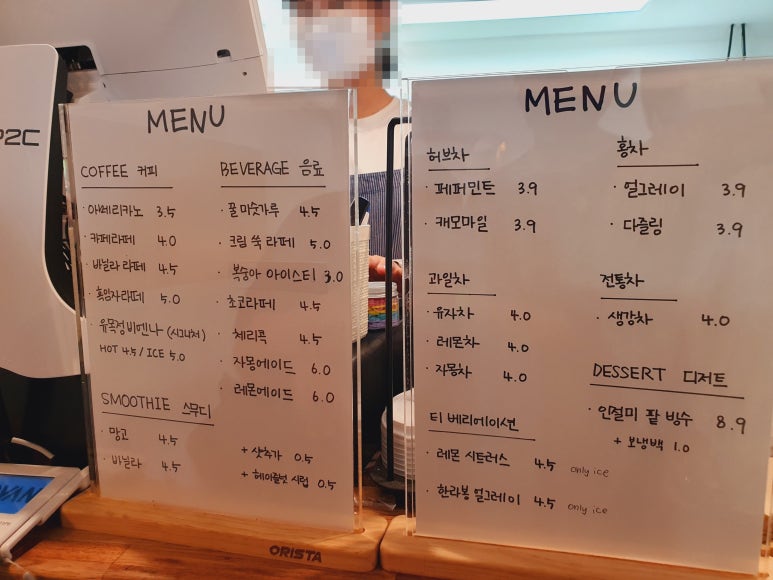 P2C
MENU
COFFEE 커피
· 아메리카노 3.5
· 카페라떼 4.0
· 바닐라 라떼 4.5
· 흑임자라떼 5.0
· 유목정비엔나 (시그니처)
HOT 4.5 / ICE 5.0
SMOOTHIE 스무디
· 망고 4.5
· 바닐라 4.5
BEVERAGE 음료
· 꿀 미숫가루 4.5
· 크림 쑥 라떼 5.0
· 복숭아 아이스티 3.0
· 초코라떼 4.5
· 체리콕 4.5
· 자몽에이드 6.0
· 레몬에이드 6.0
+ 샷추가 0.5
+ 헤이즐넛 시럽 0.5
ORISTA
MENU
허브차
· 페퍼민트 3.9
· 캐모마일 3.9
과일차
· 유자차 4.0
· 레몬차 4.0
· 자몽차 4.0
티 베리에이션
· 레몬 시트러스 4.5 only ice
· 한라봉 얼그레이 4.5 only ice
홍차
· 얼그레이 3.9
· 다즐링 3.9
전통차
· 생강차 4.0
DESSERT 디저트
· 인절미 팥 빙수 8.9
+ 보냉백 1.0